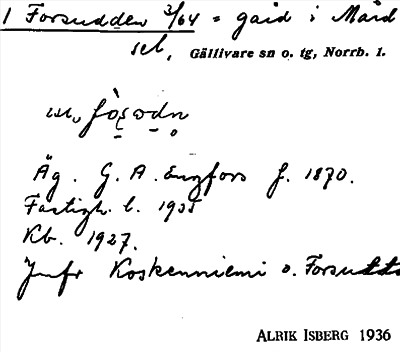 1 Forsudden 3/64 = gård i Mård
sel, Gällivare sn o. tg, Norrb. l.
Äg. G. A. Engfors f. 1870.
Fastigh. l. 1935
Kb. 1927.
Jmfr Koskenniemi o. Forsu
ALRIK ISBERG 1936